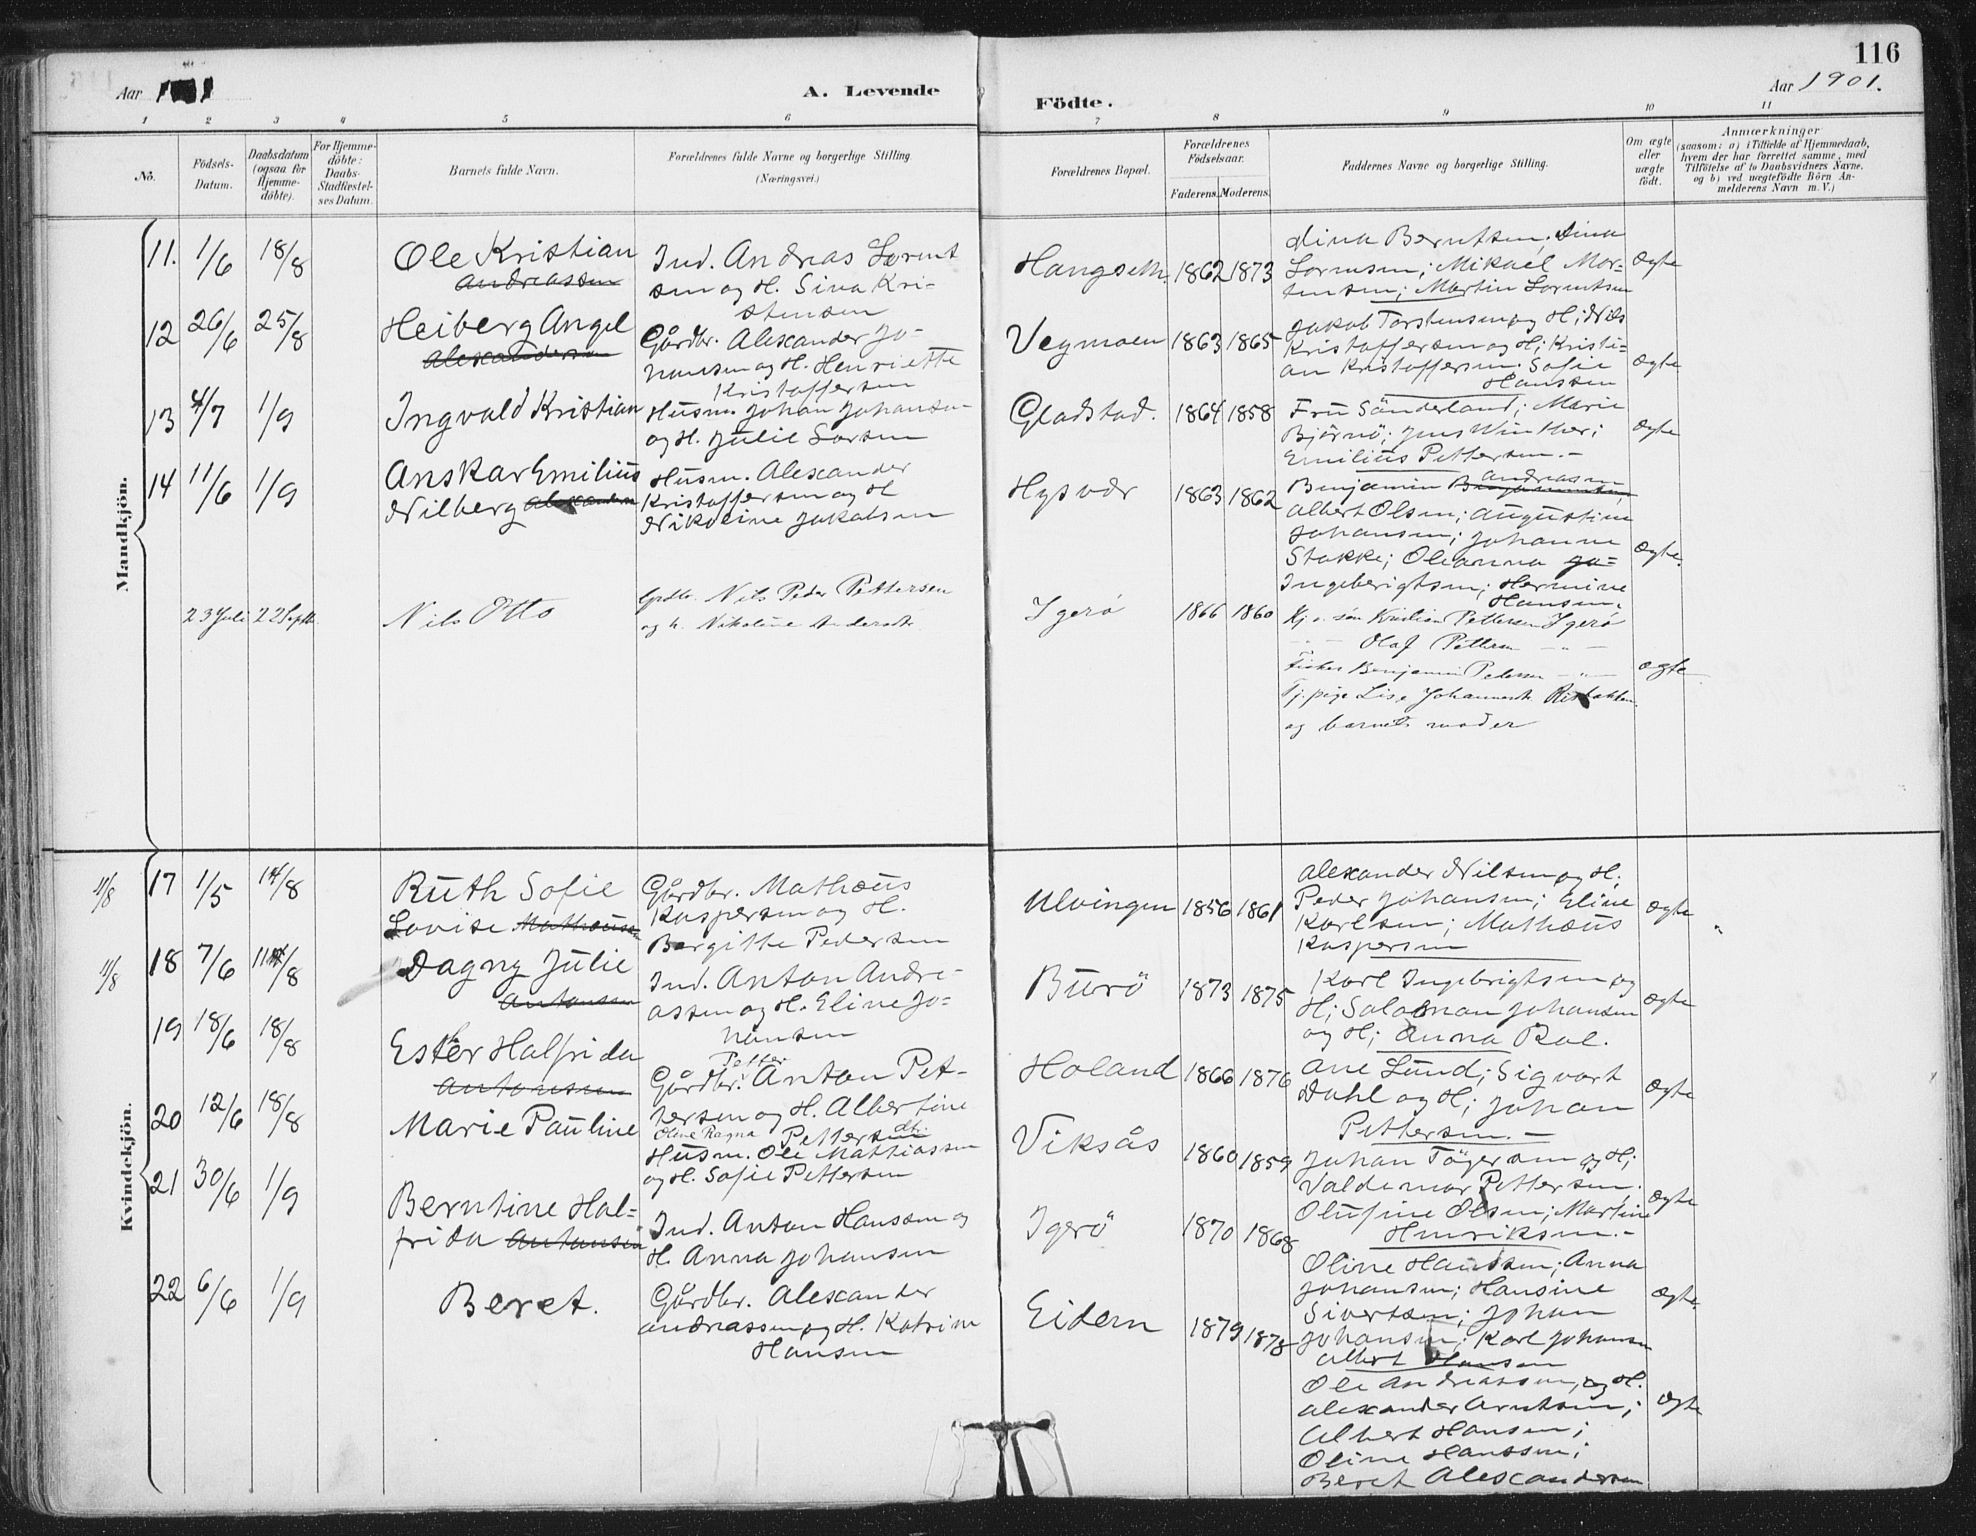 116
Aar 1901
A. Levende
Födte.
Aar 1901.
1 2 3 4 5 6 7 8 9 10 11
No.
Födsels-
Datum.
Daabsdatum
(ogsaa for
Hjemme-
döbte).
For Hjemme-
döbte:
Daabs-
Stadfæstel-
ses Datum.
Barnets fulde Navn.
Forældrenes fulde Navne og borgerlige Stilling.
(Næringsvei.)
Forældrenes Bopæl.
Forældrenes
Födselsaar.
Faderens. Moderens.
Faddernes Navne og borgerlige Stilling.
Om ægte
eller
uægte
født.
Anmærkninger
(saasom: a) i Tilfælde af Hjemmedaab,
hvem der har forrettet samme, med
Tilföielse af to Daabsvidners Navne,
og b) ved uægtefödte Börn An-
melderens Navn m. V.)
Mandkjön.
11. 1/6 18/8
Ole Kristian
Andreassen
Ind. Andreas Lorent
sen og H. Sina Kri-
stensen
Hangseth. 1862 1873
Dina Berntsen; Dina
Lorntsen; Mikael Mor-
tensen; Martin Lorentsen
ægte
12 26/6 25/8
Heiberg Angel
Alexandersen
Gårdbr. Alexander Jo-
hansen og H. Henriette
Kristoffersen
Vegmoen 1863 1865
Jakob Torstensen og H; Nils
Kristoffersen og H; Kristi-
an Kristoffersen. Sofie
Hanssen
ægte
13 4/7 1/9
Ingvald Kristian
Husm. Johan Johansen
og H. Julie Larsen
Gladstad. 1864 1858
Fru Sönderland; Marie
Björnö; Jens Winther;
Emilius Pettersen.-
ægte
14 11/6 1/9
Anskar Emilius
Nilberg Alexandersen
Husm. Alexander
Kristoffersen og H
Nikoline Jakobsen
Hysvær 1863 1862
Andreassen
Benjamin Benjaminsen,
Albert Olsen; Augustine
Johansen; Johanne
Stokke; Oleanna Jo-
Ingebrigtsen; Hermine
Hansen,
ægte.
23 Juli 22 Septb.
Nils Otto
Grdb. Nils Peder Pettersen
og h. Nikoline Andersdt.
Igerö 1866 1860
Kj. o. søn Kristian Pettersen Igerö
Olaf Pettersen
Fisker Benjamin Pedersen
Tj. pige Lise Johannesdt.
og barnets moder
ægte
Kvindekjön.
11/8 17 1/5 14/8
Ruth Sofie
Lovise Mathæussen
Gårdbr. Mathæus
Kaspersen og H.
Bergitte Pedersen
Ulvingen 1856 1861
Alexander Nilsen og H;
Peder Johansen; Eline
Karlsen; Mathæus
Kaspersen
ægte
11/8 18 7/6 11/8
Dagny Julie
Antonsen
Ind. Anton Andre-
assen og H. Eline Jo-
hansen
Burö 1873 1875
Karl Ingebrigtsen og
H; Salomon Johansen
og H; Anna Bal.
ægte
19 18/6 18/8
Ester Halfrida
Antonsen
Petter
Gårdbr. Anton Pet-
tersen og H. Albertine
Oline Ragna Pettersen dtr.
Holand 1866 1876
Ane Lund; Sigvart
Dahl og H; Johan
Pettersen.-
ægte
20 12/6 18/8
Marie Pauline
Husm. Ole Mathiassen
og H. Sofie Pettersen
Viksås 1860 1859
Johan Tögersen og H;
Valdemar Pettersen.
Olufine Olsen; Martine
Henriksen.-
ægte
21 30/6 1/9
Berntine Hal-
frida Antonsen
Ind. Anton Hanssen og
H. Anna Johansen
Igerö 1870 1868
Oline Hanssen; Anna
Johansen; Hansine
Sivertsen; Johan
Johansen; Karl Johansen
Albert Hansen
ægte
22 6/6 1/9
Beret.
Gårdbr. Alexander
Andreassen og H. Katrine
Hansen
Eidem 1879 1878
Ole Andreassen, og H.
Alexander Arntsen;
Albert Hansen;
Oline Hanssen;
Beret Alexandersen
ægte